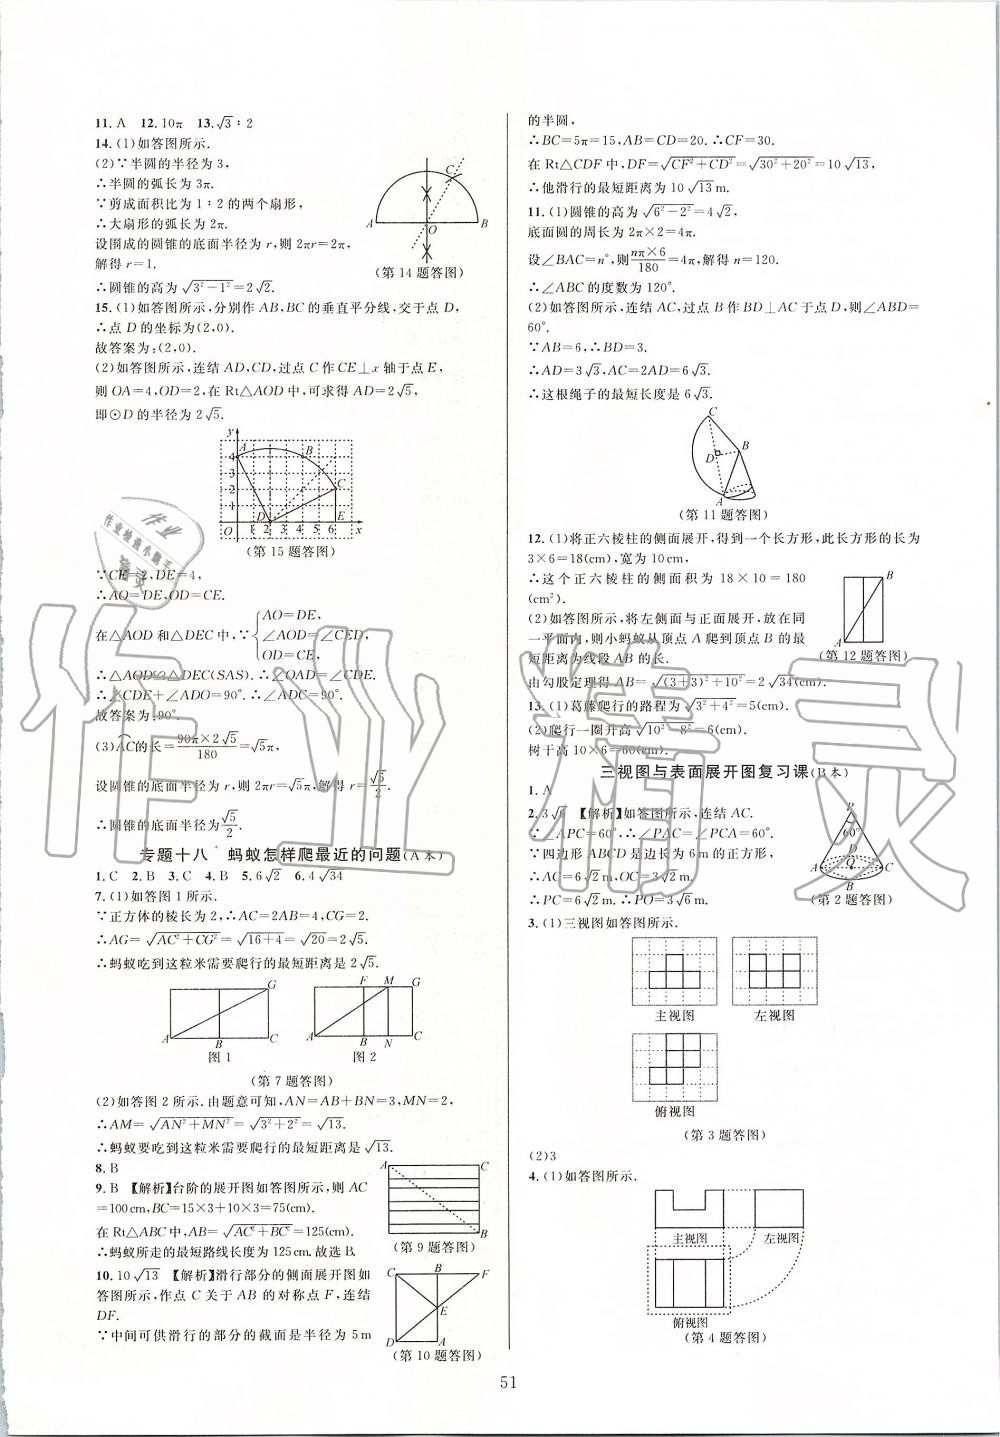 11. A　12. 10π　13. √3∶2
14. (1)如答图所示.
(2)∵半圆的半径为3,
∴半圆的弧长为3π.
∵剪成面积比为1∶2的两个扇形,
∴大扇形的弧长为2π.
设围成的圆锥的底面半径为r,则2πr=2π,
解得r=1.
∴圆锥的高为√(3²-1²)=2√2.
A O B C
(第14题答图)
15. (1)如答图所示,分别作AB,BC的垂直平分线,交于点D,
∴点D的坐标为(2,0).
故答案为:(2,0).
(2)如答图所示,连结AD,CD,过点C作CE⊥x轴于点E,
则OA=4,OD=2,在Rt△AOD中,可求得AD=2√5,
即⊙D的半径为2√5.
(第15题答图)
∵CE=2,DE=4,
∴AO=DE,OD=CE.
在△AOD和△DEC中,∵{AO=DE,
∠AOD=∠CED,
OD=CE,
∴△AOD≌△DEC(SAS).∴∠OAD=∠CDE.
∴∠CDE+∠ADO=90°.∴∠ADC=90°.
故答案为:90°.
(3)AC的长=90π×2√5/180=√5π,
设圆锥的底面半径为r,则2πr=√5π,解得r=√5/2.
∴圆锥的底面半径为√5/2.
专题十八　蚂蚁怎样爬最近的问题(A本)
1. C　2. B　3. C　4. B　5. 6√2　6. 4√34
7. (1)如答图1所示.
∵正方体的棱长为2,∴AC=2AB=4,CG=2.
∴AG=√(AC²+CG²)=√(16+4)=√20=2√5.
∴蚂蚁吃到这粒米需要爬行的最短距离是2√5.
A B C G
图1
A B N C F M G
图2
(第7题答图)
(2)如答图2所示.由题意可知,AN=AB+BN=3,MN=2,
∴AM=√(AN²+MN²)=√(3²+2²)=√13.
∴蚂蚁要吃到这粒米需要爬行的最短距离是√13.
8. B
9. B　【解析】台阶的展开图如答图所示,则AC
=100cm,BC=15×3+10×3=75(cm).
在Rt△ABC中,AB=√(AC²+BC²)=125(cm).
∴蚂蚁所走的最短路线长度为125cm.故选B.
A C B
(第9题答图)
10. 10√13　【解析】滑行部分的侧面展开图如
答图所示,作点C关于AB的对称点F,连结
DF.
∵中间可供滑行的部分的截面是半径为5m
C B F E D A
(第10题答图)
的半圆,
∴BC=5π=15,AB=CD=20.∴CF=30.
在Rt△CDF中,DF=√(CF²+CD²)=√(30²+20²)=10√13,
∴他滑行的最短距离为10√13m.
11. (1)圆锥的高为√(6²-2²)=4√2,
底面圆的周长为2π×2=4π.
设∠BAC=n°,则nπ×6/180=4π,解得n=120.
∴∠ABC的度数为120°.
(2)如答图所示,连结AC,过点B作BD⊥AC于点D,则∠ABD=
60°.
∵AB=6,∴BD=3.
∴AD=3√3,AC=2AD=6√3.
∴这根绳子的最短长度是6√3.
C B D A
(第11题答图)
12. (1)将正六棱柱的侧面展开,得到一个长方形,此长方形的长为
3×6=18(cm),宽为10cm,
∴这个正六棱柱的侧面积为18×10=180
(cm²).
(2)如答图所示,将左侧面与正面展开,放在同
一平面内,则小蚂蚁从顶点A爬到顶点B的最
短距离为线段AB的长.
由勾股定理得AB=√((3+3)²+10²)=2√34(cm).
A B
(第12题答图)
13. (1)葛藤爬行的路程为√(3²+4²)=5(cm).
(2)爬行一圈升高√(10²-8²)=6(cm).
树干高10×6=60(cm).
三视图与表面展开图复习课(B本)
1. A
2. 3√6　【解析】如答图所示,连结AC.
∵∠APC=60°,∴∠PAC=∠PCA=60°.
∵四边形ABCD是边长为6m的正方形,
∴AC=6√2m,OC=3√2m.
∴PC=6√2m.∴PO=3√6m.
P 60° A O C B
(第2题答图)
3. (1)三视图如答图所示.
主视图　左视图
俯视图
(第3题答图)
(2)3
4. (1)如答图所示.
主视图　左视图
俯视图
(第4题答图)
51
作业精灵
作业检查小助手